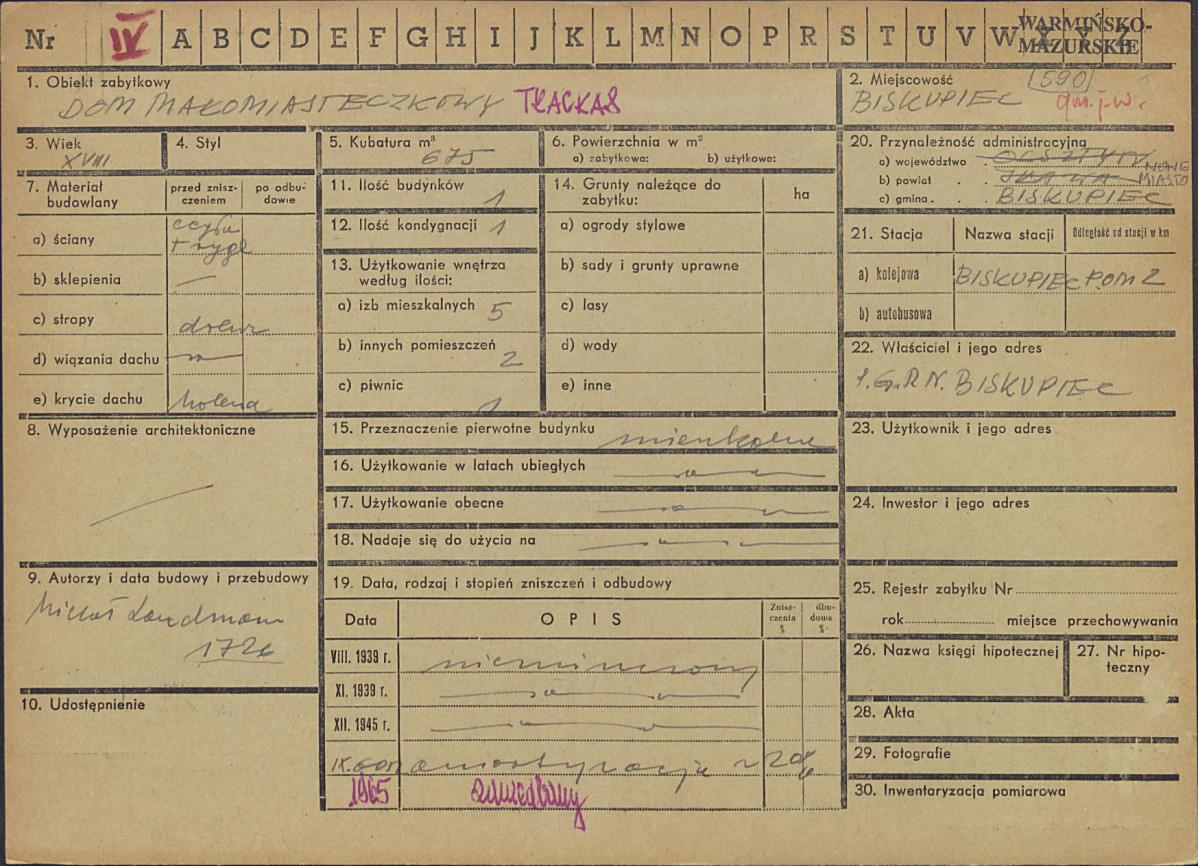 Nr IV A B C D E F G H I J K L M N O P R S T U V W X Y Z
WARMIŃSKO-
MAZURSKIE
1. Obiekt zabytkowy
DOM MAŁOMIASTECZKOWY TKACKA 8
2. Miejscowość (590)
BISKUPIEC gm. j-w.
3. Wiek
XVIII
4. Styl
5. Kubatura m³
675
6. Powierzchnia w m²
a) zabytkowa: b) użytkowa:
20. Przynależność administracyjna
a) województwo OLSZTYN
b) powiat IŁAWA NOWE
MIASTO
c) gmina BISKUPIEC
7. Materiał
budowlany
przed znisz-
czeniem
po odbu-
dowie
a) ściany cegła
+ rygl
b) sklepienia —
c) stropy drewn
d) wiązania dachu
e) krycie dachu holend
11. Ilość budynków 1
12. Ilość kondygnacji 1
13. Użytkowanie wnętrza
według ilości:
a) izb mieszkalnych 5
b) innych pomieszczeń
2
c) piwnic
1
14. Grunty należące do
zabytku:
ha
a) ogrody stylowe
b) sady i grunty uprawne
c) lasy
d) wody
e) inne
21. Stacja Nazwa stacji Odległość od stacji w km
a) kolejowa BISKUPIEC POM 2
b) autobusowa
22. Właściciel i jego adres
P.G.R.N. BISKUPIEC
8. Wyposażenie architektoniczne
—
15. Przeznaczenie pierwotne budynku mieszkalne
16. Użytkowanie w latach ubiegłych
17. Użytkowanie obecne
18. Nadaje się do użycia na
23. Użytkownik i jego adres
24. Inwestor i jego adres
9. Autorzy i data budowy i przebudowy
Landmann
1726
10. Udostępnienie
19. Data, rodzaj i stopień zniszczeń i odbudowy
Data OPIS Znisz-
czenia
%
dbu-
dowa
%
VIII. 1939 r. niezniszczony
XI. 1939 r.
XII. 1945 r.
IX. 60 r. amortyzacja ~ 20%
1965 zaniedbany
25. Rejestr zabytku Nr
rok miejsce przechowywania
26. Nazwa księgi hipotecznej
27. Nr hipo-
teczny
28. Akta
29. Fotografie
30. Inwentaryzacja pomiarowa